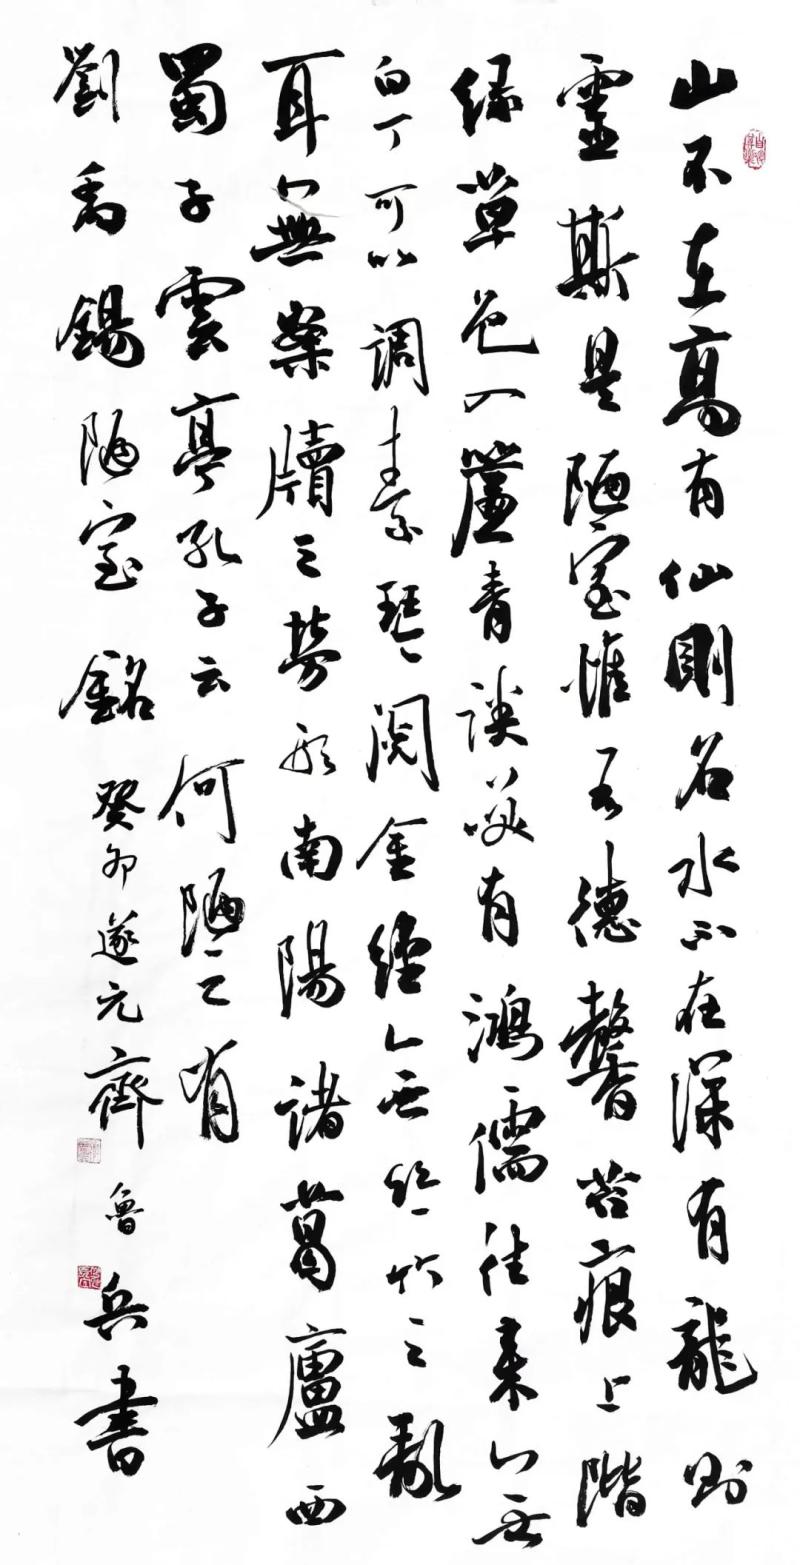 山不在高有仙則名水不在深有龍則
靈斯是陋室惟吾德馨苔痕上階
綠草色入簾青談笑有鴻儒往來無
白丁可以調素琴閱金經無絲竹之亂
耳無案牘之勞形南陽諸葛廬西
蜀子雲亭孔子云何陋之有
劉禹錫陋室銘癸卯遂元齊魯兵書